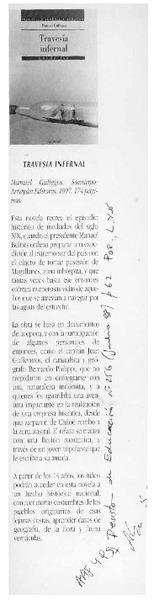 Travesía
infernal
TRAVESIA INFERNAL
Manuel Gallegos. Santiago:
Arrayán Editores, 1997, 174 pági-
nas
Esta novela recrea el episodio
histórico de mediados del siglo
XIX, cuando el presidente Manuel
Bulnes ordena preparar una expe-
dición al extremo sur del país con
el objeto de tomar posesión de
Magallanes, zona inhóspita, y que
hasta ese
entonces había cobrado
numerosas vidas de aque-
llos que se atrevían a navegar por
las aguas del estrecho.
La obra se basa en documentos
de la época, y con la participación
de algunos personajes de
entonces, como el capitán Juan
Guillermos, el naturalista y geó-
grafo Bernardo Philippi, que no
trepidaron en enfrentarse con
una naturaleza indómita, y
quienes les aguardaba una aven-
tura impactante en la realización
de una empresa histórica, desde
que zarparon de Chiloé rumbo a
la zona austral. El relato se realiza
con una ficción romántica, a
través de un joven que
le escribe a su amada.
A partir de los 14 años, los niños
podrán acceder en esta novela a
un hecho histórico nacional,
conocer ciertas costumbres de los
pueblos originarios de esas
lejanas costas, aprender datos de
geografía, de la flora y fauna
vernáculas.
Revista de Educación